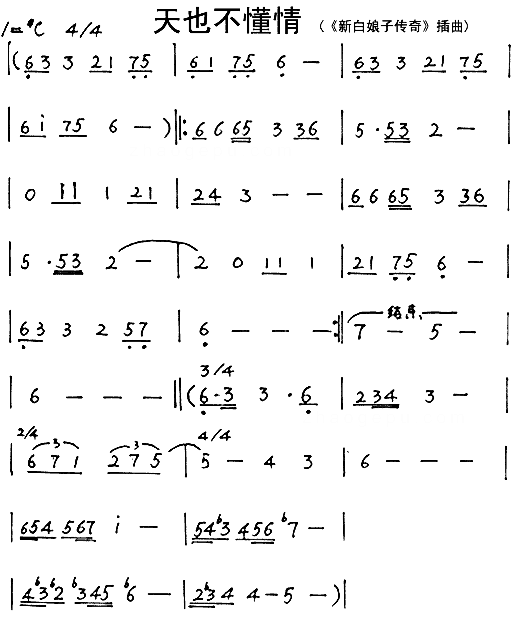 1=#C 4/4 天也不懂情 (《新白娘子传奇》插曲)
|(63 3 21 75 | 61 75 6 — | 63 3 21 75 |
| 6i 75 6 — )‖: 6 6 65 3 36 | 5 · 53 2 — |
| 0 11 1 21 | 24 3 — — | 6 6 65 3 36 |
| 5 · 53 2 — | 2 0 11 1 | 21 75 6 — |
| 63 3 2 57 | 6 — — — :‖ 7 — 5 — |
结束
3/4
| 6 — — — ‖( 6·3 3 · 6 | 234 3 — |
2/4 3 3 4/4
| 6 7 1 2 7 5 | 5 — 4 3 | 6 — — |
| 654 567 i — | 54b3 456 b7 — |
| 4b3b2 b345 b6 — | 2b34 4 — 5 — )|